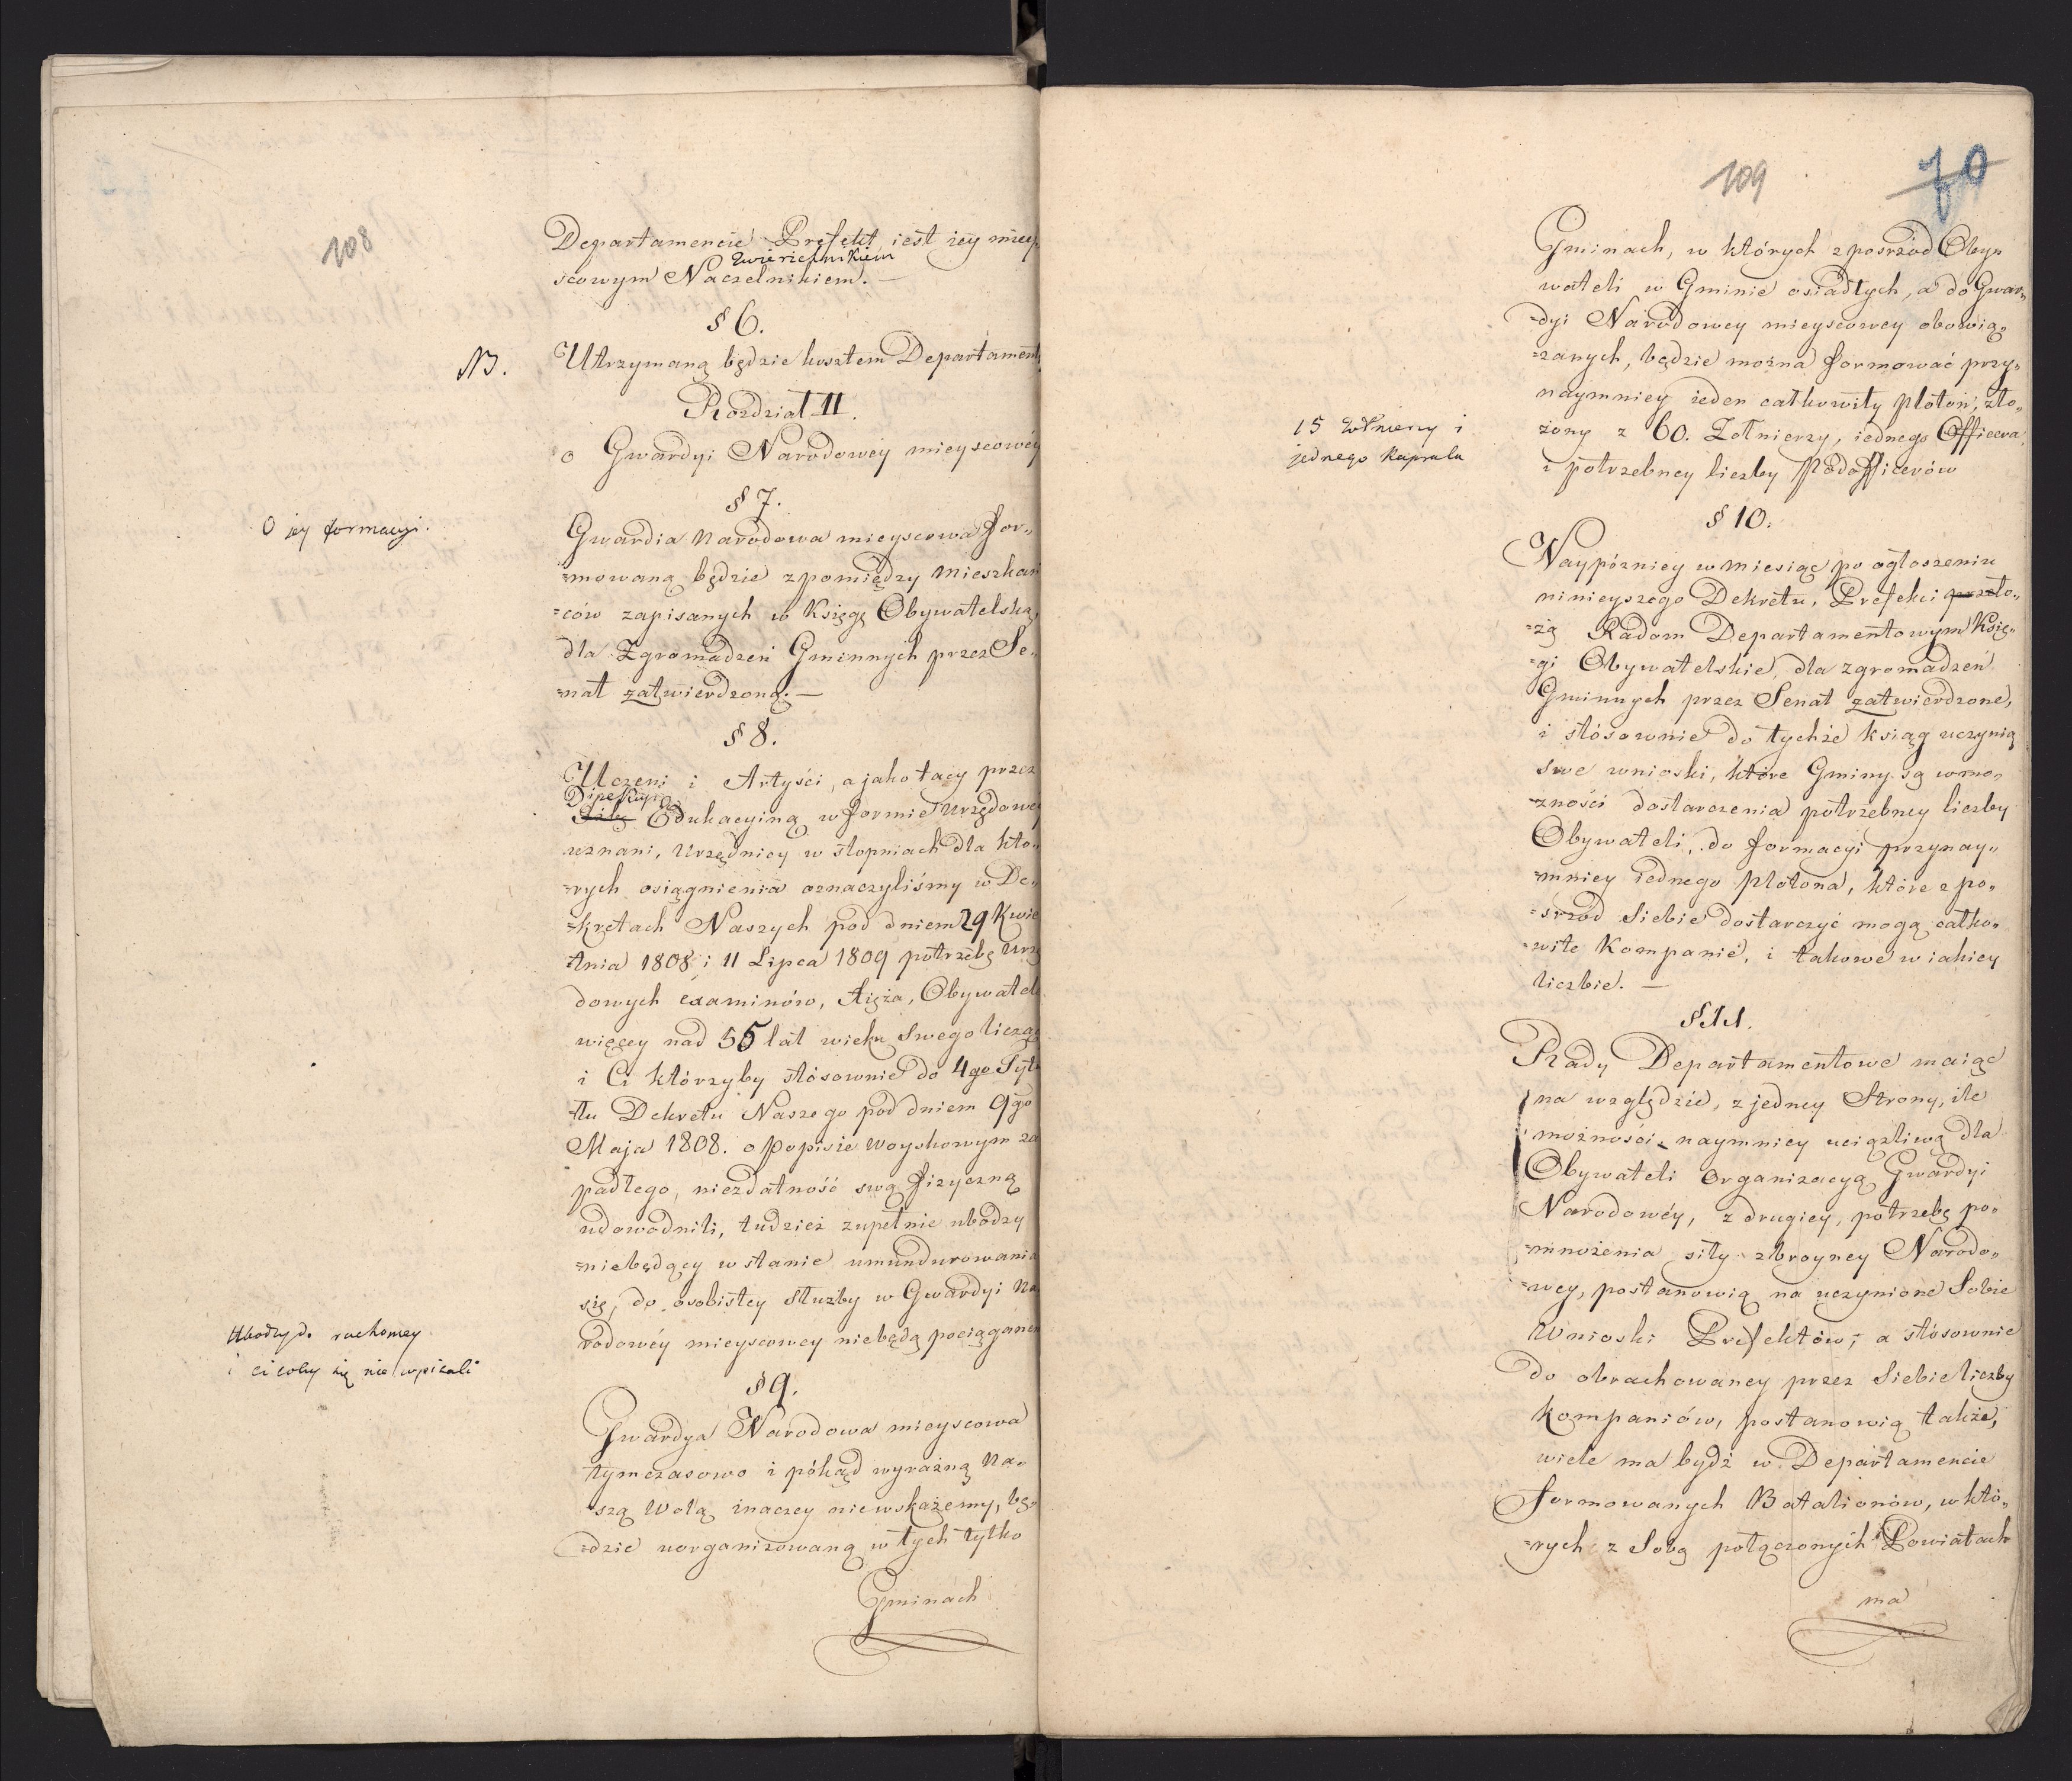 108
Departamencie Prefekt iest iey miey
Zwierzchnikiem
scowym Naczelnikiem. —
§ 6.
NB.
Utrzymaną będzie kosztem Departament
Rozdział II.
o Gwardyi Narodowéy mieyscowéy
§ 7.
O jey formacyi.
Gwardia Narodowa mieyscowa for„
=mowaną będzie z pomiędzy Mieszkań
=ców zapisanych w Księgę Obywatelską,
dla Zgromadzeń Gminnych przez Se„
=nat zatwierdzoną. —
§ 8.
Uczeni i Artyści, a jako tacy przez
Direkcyią
Izbę Edukacyiną w formie Urzędowey
uznani, Urzędnicy w stopniach dla któ„
=rych osiągnienia oznaczyliśmy w De„
=kretach Naszych pod dniem 29 Kwie
tnia 1808 i 11 Lipca 1809 potrzebę Urzę
dowych examinów, Xięża, Obywatele
więcey nad 55 lat wieku Swego licząc
i Ci którzyby stósownie do 4go Tytu
=łu Dekretu Naszego pod dniem 9go
Maja 1808. o Popisie woyskowym za
padłego, niezdatność swą fizyczną
udowodnili, tudzież zupełnie ubodzy
=niebędący w stanie umundurowania
się, do osobistey służby w Gwardyi Na
rodowéy mieyscowey niebędą pociągane
Ubodzy do ruchomey
i ci coby się nie wpisali
§ 9.
Gwardya Narodowa mieyscowa
tymczasowo i pókąd wyraźną Na„
szą Wolą inaczey niewskażemy, bę„
=dzie uorganizowaną w tych tylko
Gminach
109
70
Gminach, w których z pośród Oby„
wateli w Gminie osiadłych, a do Gwar„
=dyi Narodowey mieyscowey obowią„
=zanych, będzie można formować przy„
naymniey ieden całkowity ploton, zło„
15 żołnierzy i
jednego Kaprala
żony z 60. Żołnierzy, iednego Officera,
i potrzebney liczby Podofficerów
§ 10.
Naypóźniey w miesiąc po ogłoszeniu
ninieyszego Dekretu, Prefekci przeło„
=żą Radom Departamentowym Księ„
=gi Obywatelskie, dla zgromadzeń
Gminnych przez Senat zatwierdzone,
i stósownie do tychże ksiąg uczynią
swe wnioski, które Gminy są w mo„
=żności dostarczenia potrzebney liczby
Obywateli, do formacyi przynay„
=mniey iednego plotona, które z po„
=śrzód Siebie dostarczyć mogą całko„
=wite Kompanie, i takowe w iakiey
liczbie. —
§ 11.
Rady Departamentowe maiąc
na względzie, z jedney Strony, ile
możności naymniey uciążliwą dla
Obywateli Organizacyą Gwardyi
Narodowéy, z drugiey, potrzebę po„
=mnożenia siły zbroyney Narodo„
=wey, postanowią na uczynione Sobie
Wnioski Prefektów, a stósownie
do obrachowaney przez Siebie liczby
kompaniów, postanowią także,
wiele ma bydź w Departamencie
formowanych Batalionów, w któ„
=rych z Sobą połączonych Powiatach
ma